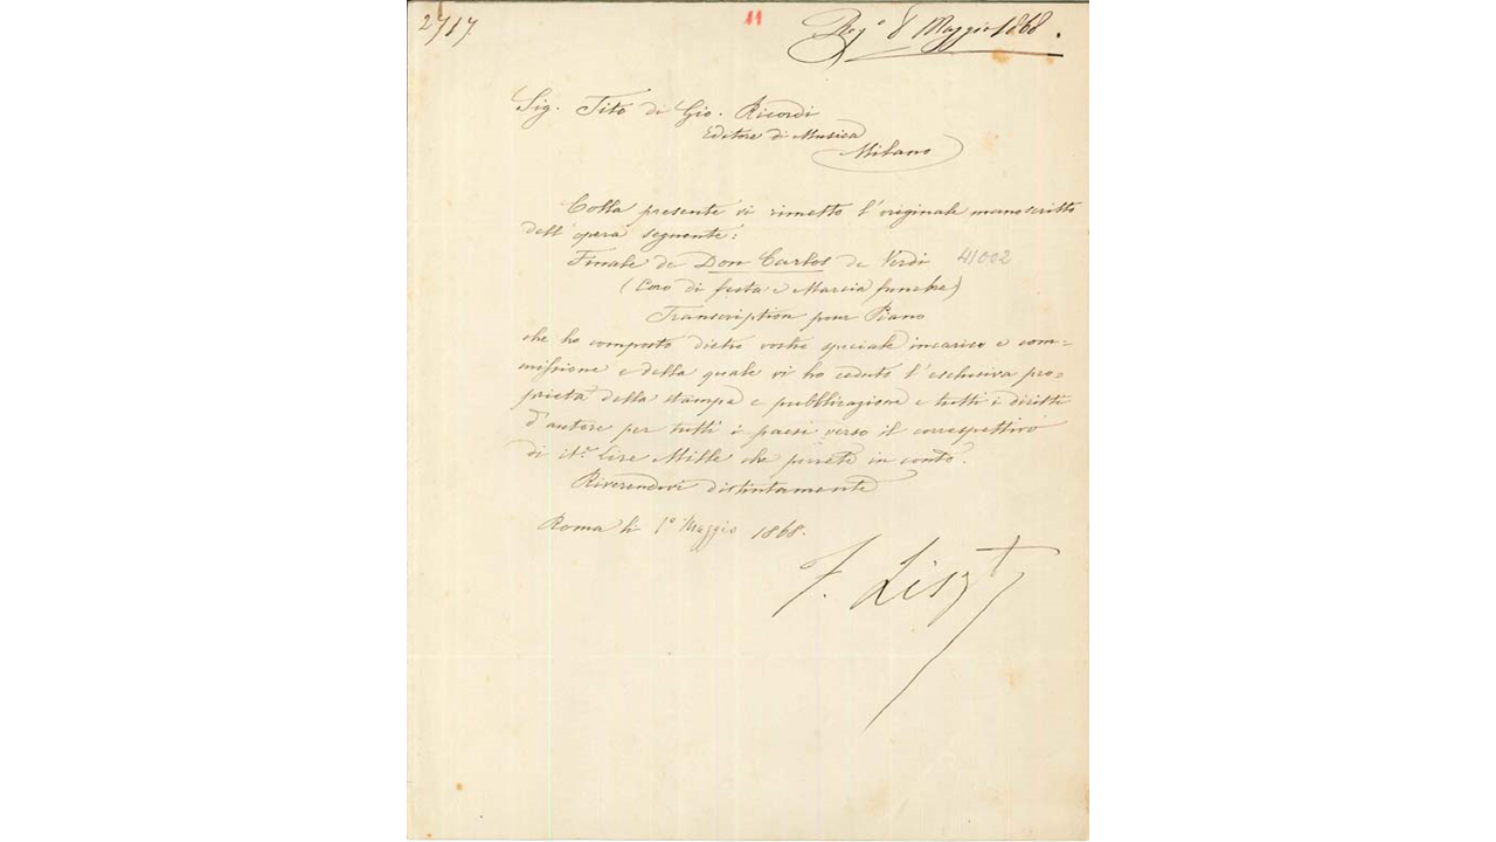 2717
11
Reg.° 8 Maggio 1868.
Sig. Tito di Gio. Ricordi
Editore di Musica
Milano
Colla presente vi rimetto l'originale manoscritto
dell'opera seguente:
Finale de Don Carlos de Verdi 41002
(Coro di festa e Marcia funebre)
Transcription pour Piano
che ho composto dietro vostro speciale incarico e com=
missione e della quale vi ho ceduto l'esclusiva pro=
prietà della stampa e pubblicazione e tutti i diritti
d'autore per tutti i paesi verso il correspettivo
di it.e Lire Mille che porrete in conto.
Riverendovi distintamente
Roma li 1° Maggio 1868.
F. Liszt